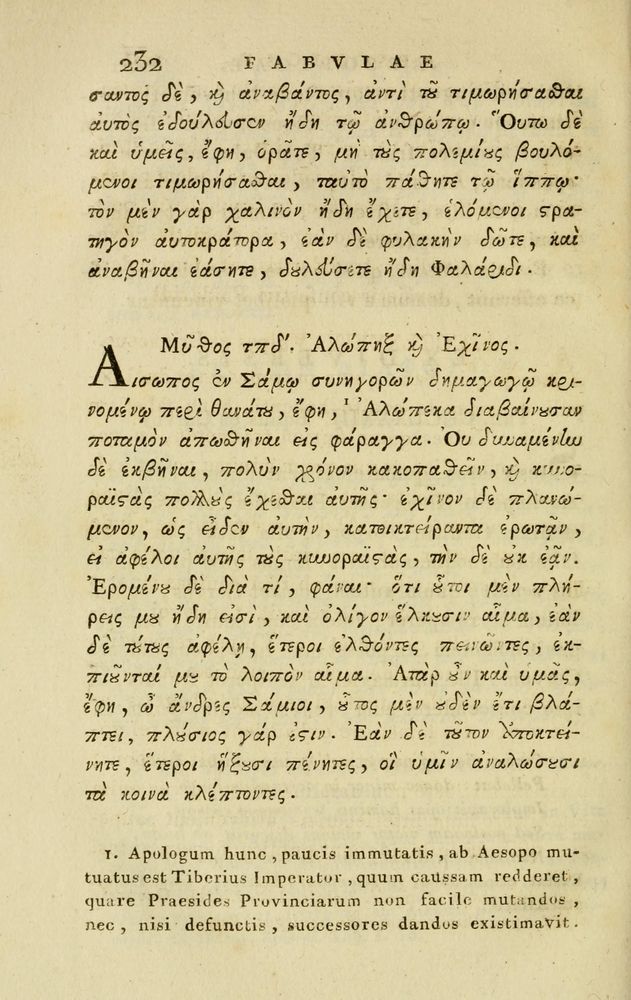 232 FABVLAE
σαντος δὲ, καὶ ἀναβάντος, ἀντὶ τοῦ τιμωρήσαθαι
αὐτὸς ἐδούλευσεν ἤδη τῷ ἀνθρώπῳ. Ὅυτω δὲ
καὶ ὑμεῖς, ἔφη, ὁρᾶτε, μὴ τοὺς πολεμίους βουλό-
μενοι τιμωρήσαθαι, ταὐτὸ πάθητε τῷ ἵππῳ·
τὸν μὲν γὰρ χαλινὸν ἤδη ἔχετε, ἑλόμενοι στρα-
τηγὸν αὐτοκράτορα, ἐὰν δὲ φυλακὴν δῶτε, καὶ
ἀναβῆναι ἐάσητε, δουλεύσετε ἤδη Φαλάριδι.
Μῦθος τπδ'. Ἀλώπηξ καὶ Ἐχῖνος.
Αἰσωπος ἐν Σάμῳ συνηγορῶν δημαγωγῷ κρι-
νομένῳ περὶ θανάτου, ἔφη, 1 Ἀλώπεκα διαβαίνουσαν
ποταμὸν ἀπωθῆναι εἰς φάραγγα. Ὀυ δυναμένην
δὲ ἐκβῆναι, πολὺν χρόνον κακοπαθεῖν, καὶ κυνο-
ραϊστὰς πολλοὺς ἔχεθαι αὐτῆς· ἐχῖνον δὲ πλανώ-
μενον, ὡς εἶδεν αὐτὴν, κατοικτείραντα ἐρωτᾷν,
εἰ ἀφέλοι αὐτῆς τοὺς κυνοραϊστὰς, τὴν δὲ οὐκ ἐᾷν.
Ἐρομένου δὲ διὰ τί, φάναι· ὅτι οὗτοι μὲν πλή-
ρεις μου ἤδη εἰσὶ, καὶ ὀλίγον ἕλκουσιν αἷμα, ἐὰν
δὲ τούτους ἀφέλῃ, ἕτεροι ἐλθόντες πεινῶντες, ἐκ-
πιοῦνταί μου τὸ λοιπὸν αἷμα. Ἀτὰρ οὖν καὶ ὑμᾶς,
ἔφη, ὦ ἄνδρες Σάμιοι, οὗτος μὲν οὐδὲν ἔτι βλά-
πτει, πλούσιος γάρ ἐστιν. Ἐὰν δὲ τοῦτον ἀποκτεί-
νητε, ἕτεροι ἥξουσι πένητες, οἳ ὑμῖν ἀναλώσουσι
τὰ κοινὰ κλέπτοντες.
1. Apologum hunc, paucis immutatis, ab Aesopo mu-
tuatus est Tiberius Imperator, quum caussam redderet,
quare Praesides Provinciarum non facile mutandos,
nec, nisi defunctis, successores dandos existimaVit.